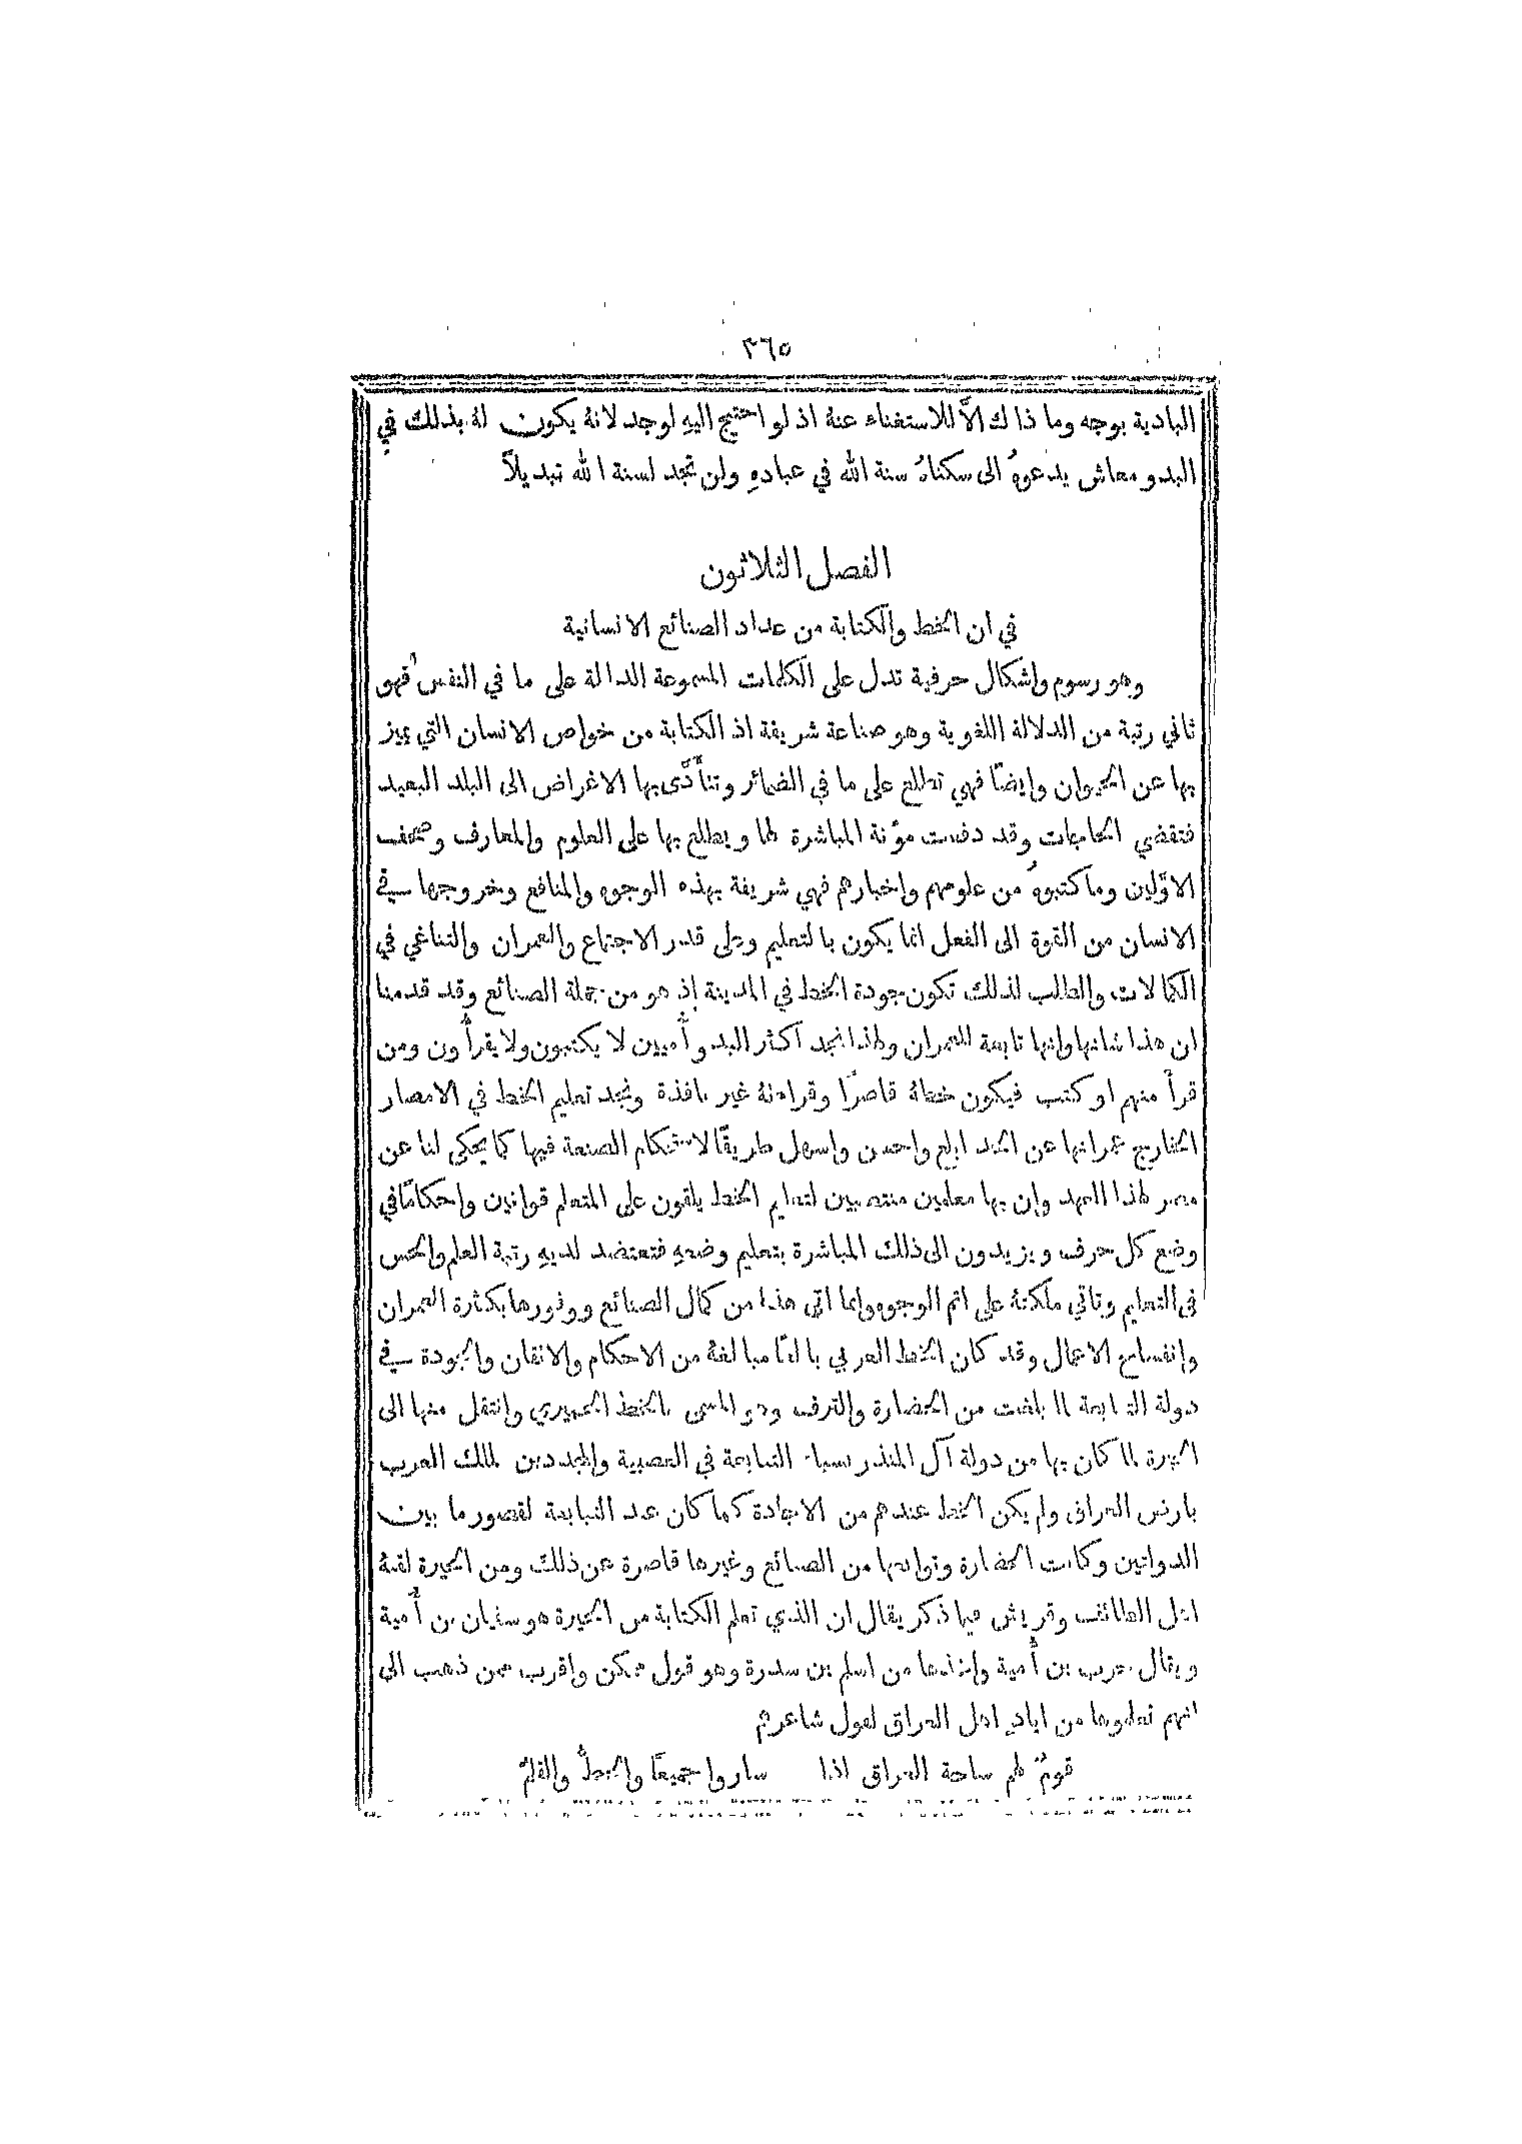 ٣٦٥
البادية بوجه وما ذاك الاَّ للاستغناء عنهُ اذ لو احتيج اليهِ لوجد لانهُ يكون لهُ بذلك في
البدو معاش يدعوهُ الى سكناهُ سنة الله في عبادهِ ولن تجد لسنة الله تبديلاً
الفصل الثلاثون
في ان الخط والكتابة من عداد الصنائع الانسانية
وهو رسوم واشكال حرفية تدل على الكلمات المسموعة الدالة على ما في النفس فهو
ثاني رتبة من الدلالة اللغوية وهو صناعة شريفة اذ الكتابة من خواص الانسان التي يميز
بها عن الحيوان وايضًا فهي تطلع على ما في الضمائر وتتأدَّى بها الاغراض الى البلد البعيد
فتقضي الحاجات وقد دفعت مؤنة المباشرة لها ويطلع بها على العلوم والمعارف وصحف
الاوّلين وما كتبوهُ من علومهم واخبارهم فهي شريفة بهذه الوجوه والمنافع وخروجها في
الانسان من القوة الى الفعل انما يكون بالتعليم وعلى قدر الاجتماع والعمران والتناغي في
الكمالات والطلب لذلك تكون جودة الخط في المدينة إذ هو من جملة الصنائع وقد قدمنا
ان هذا شانها وانها تابعة للعمران ولهذا نجد اكثر البدو أُميين لا يكتبون ولا يقرأُون ومن
قرأَ منهم او كتب فيكون خطهُ قاصرًا وقراءتهُ غير نافذة ونجد تعليم الخط في الامصار
الخارج عمرانها عن الحد ابلغ واحسن واسهل طريقًا لاستحكام الصنعة فيها كما يحكى لنا عن
مصر لهذا العهد وإن بها معلمين منتصبين لتعليم الخط يلقون على المتعلم قوانين واحكامًا في
وضع كل حرف ويزيدون الى ذلك المباشرة بتعليم وضعهِ فتعتضد لديهِ رتبة العلم والحس
في التعليم وتاتي ملكتهُ على اتم الوجوه وانما اتى هذا من كمال الصنائع ووفورها بكثرة العمران
وإنفساح الاعمال وقد كان الخط العربي بالغًا مبالغهُ من الاحكام والاتقان والجودة في
دولة التبابعة لما بلغت من الحضارة والترف وهو المسمى بالخط الحميري وانتقل منها الى
الحيرة لما كان بها من دولة آل المنذر نسباء التبابعة في العصبية والمجددين لملك العرب
بارض العراق ولم يكن الخط عندهم من الاجادة كما كان عند التبابعة لقصور ما بين
الدولتين وكانت الحضارة وتوابعها من الصنائع وغيرها قاصرة عن ذلك ومن الحيرة لقنهُ
اهل الطائف وقريش فيما ذكر يقال ان الذي تعلم الكتابة من الحيرة هو سفيان بن أُمية
ويقال حرب بن أُمية واخذها من اسلم بن سدرة وهو قول ممكن واقرب ممن ذهب الى
انهم تعلموها من اياد اهل العراق لقول شاعرهم
قومٌ لهم ساحة العراق اذا ساروا جميعًا والخطُّ والقلمُ